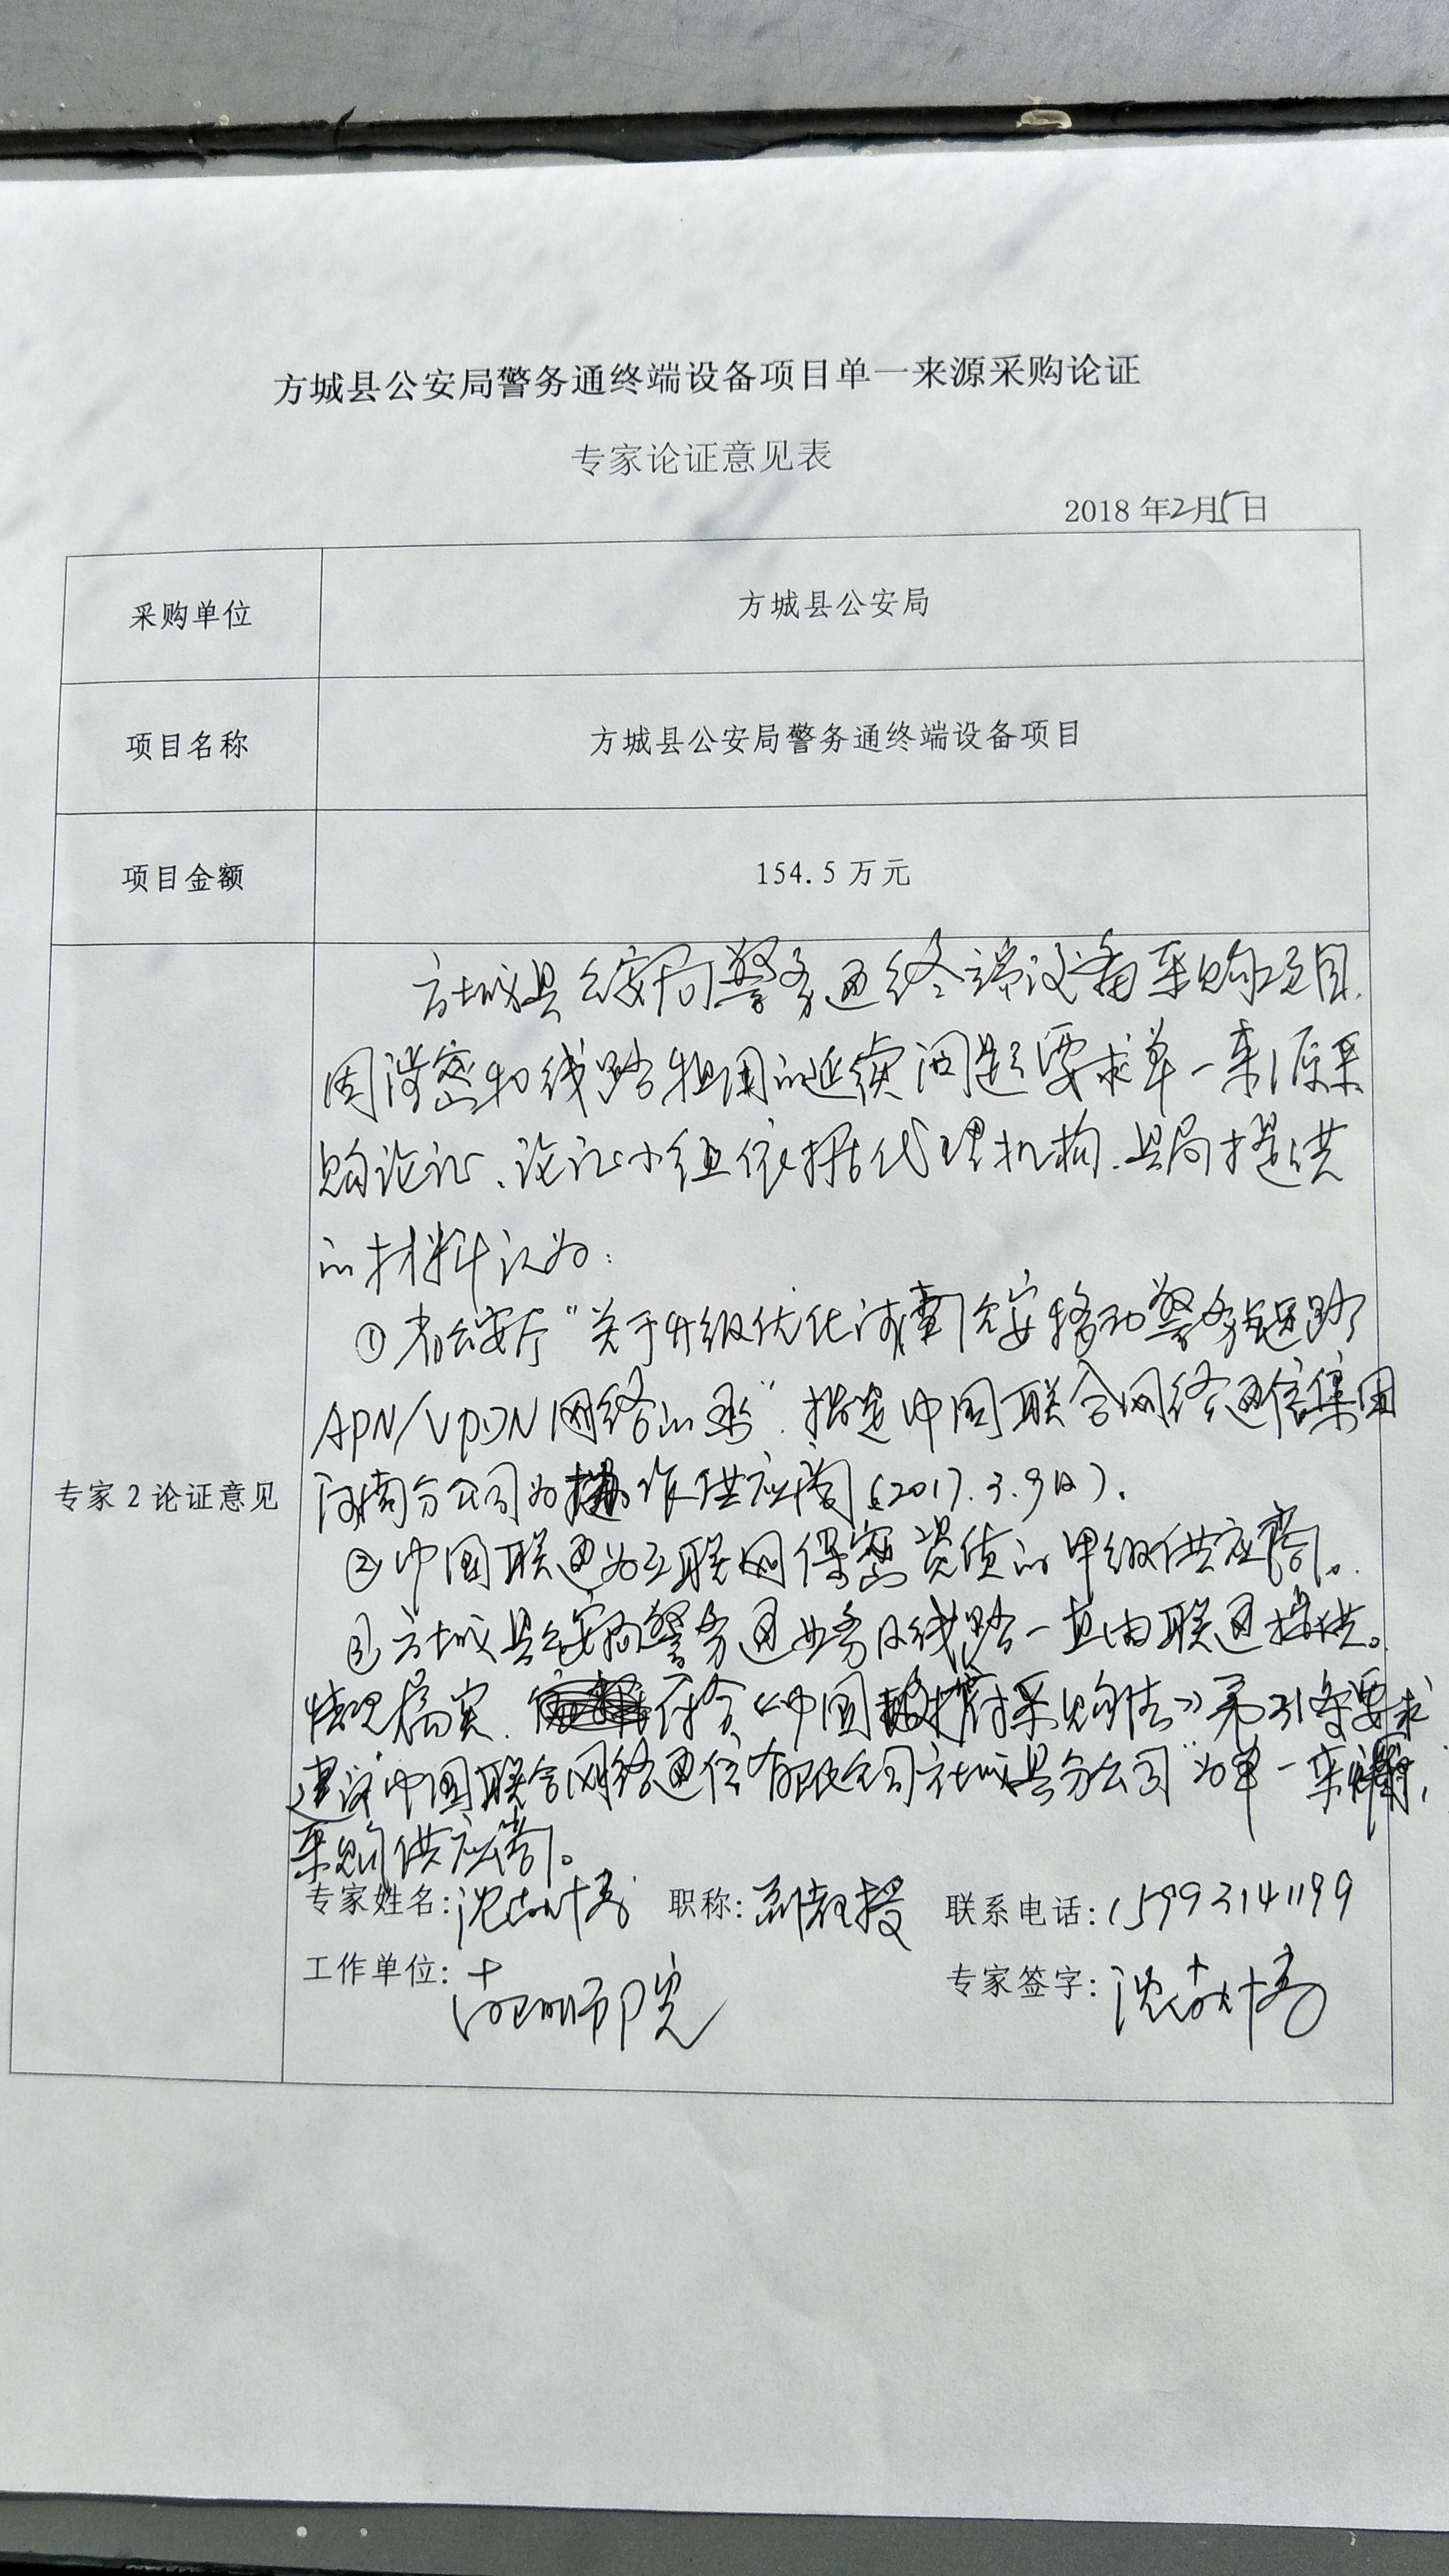 方城县公安局警务通终端设备项目单一来源采购论证
专家论证意见表
2018年2月5日
采购单位
方城县公安局
项目名称
方城县公安局警务通终端设备项目
项目金额
154.5万元
专家2论证意见
方城县公安局警务通终端设备采购项目.
因涉密和线路租用的延续问题要求单一来源采
购论证、论证小组依据代理机构.县局提供
的材料认为:
①省公安厅"关于升级优化河南公安移动警务链路
APN/VPDN网络的函".指定中国联合网络通信集团
河南分公司为 作供应商(2017.3.9日).
②中国联通为互联网保密资质的甲级供应商。
③方城县公安局警务通业务及线路一直由联通提供。
情况属实. 符合《中国政府采购法》第31条要求
建议"中国联合网络通信有限公司方城县分公司"为单一来源
采购供应商。
专家姓名: 职称:副教授 联系电话:15993141199
工作单位: 师院
专家签字: